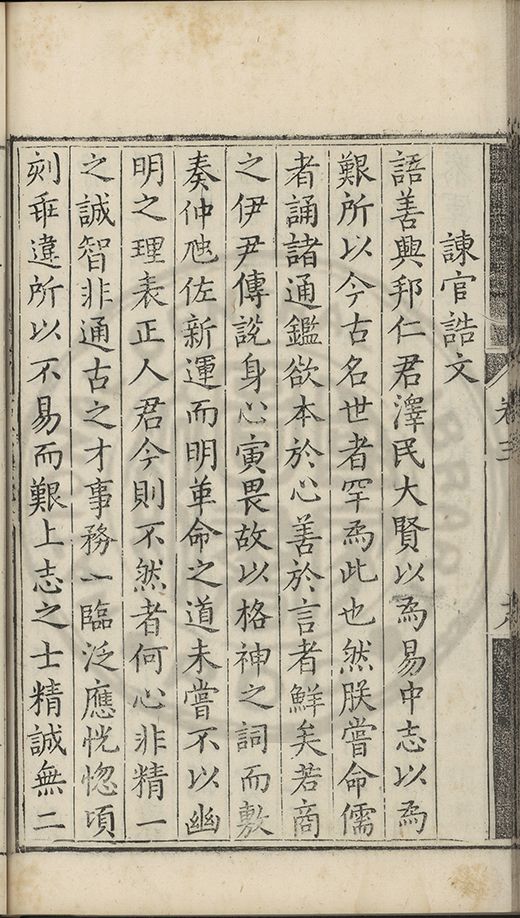 卷三
六
諫官誥文
語善興邦仁君澤民大賢以爲易中志以爲
艱所以今古名世者罕爲此也然朕嘗命儒
者誦諸通鑑欲本於心善於言者鮮矣若商
之伊尹傳說身心寅畏故以格神之詞而敷
奏仲虺佐新運而明革命之道未嘗不以幽
明之理表正人君今則不然者何心非精一
之誠智非通古之才事務一臨泛應恍惚頃
刻乖違所以不易而艱上志之士精誠無二